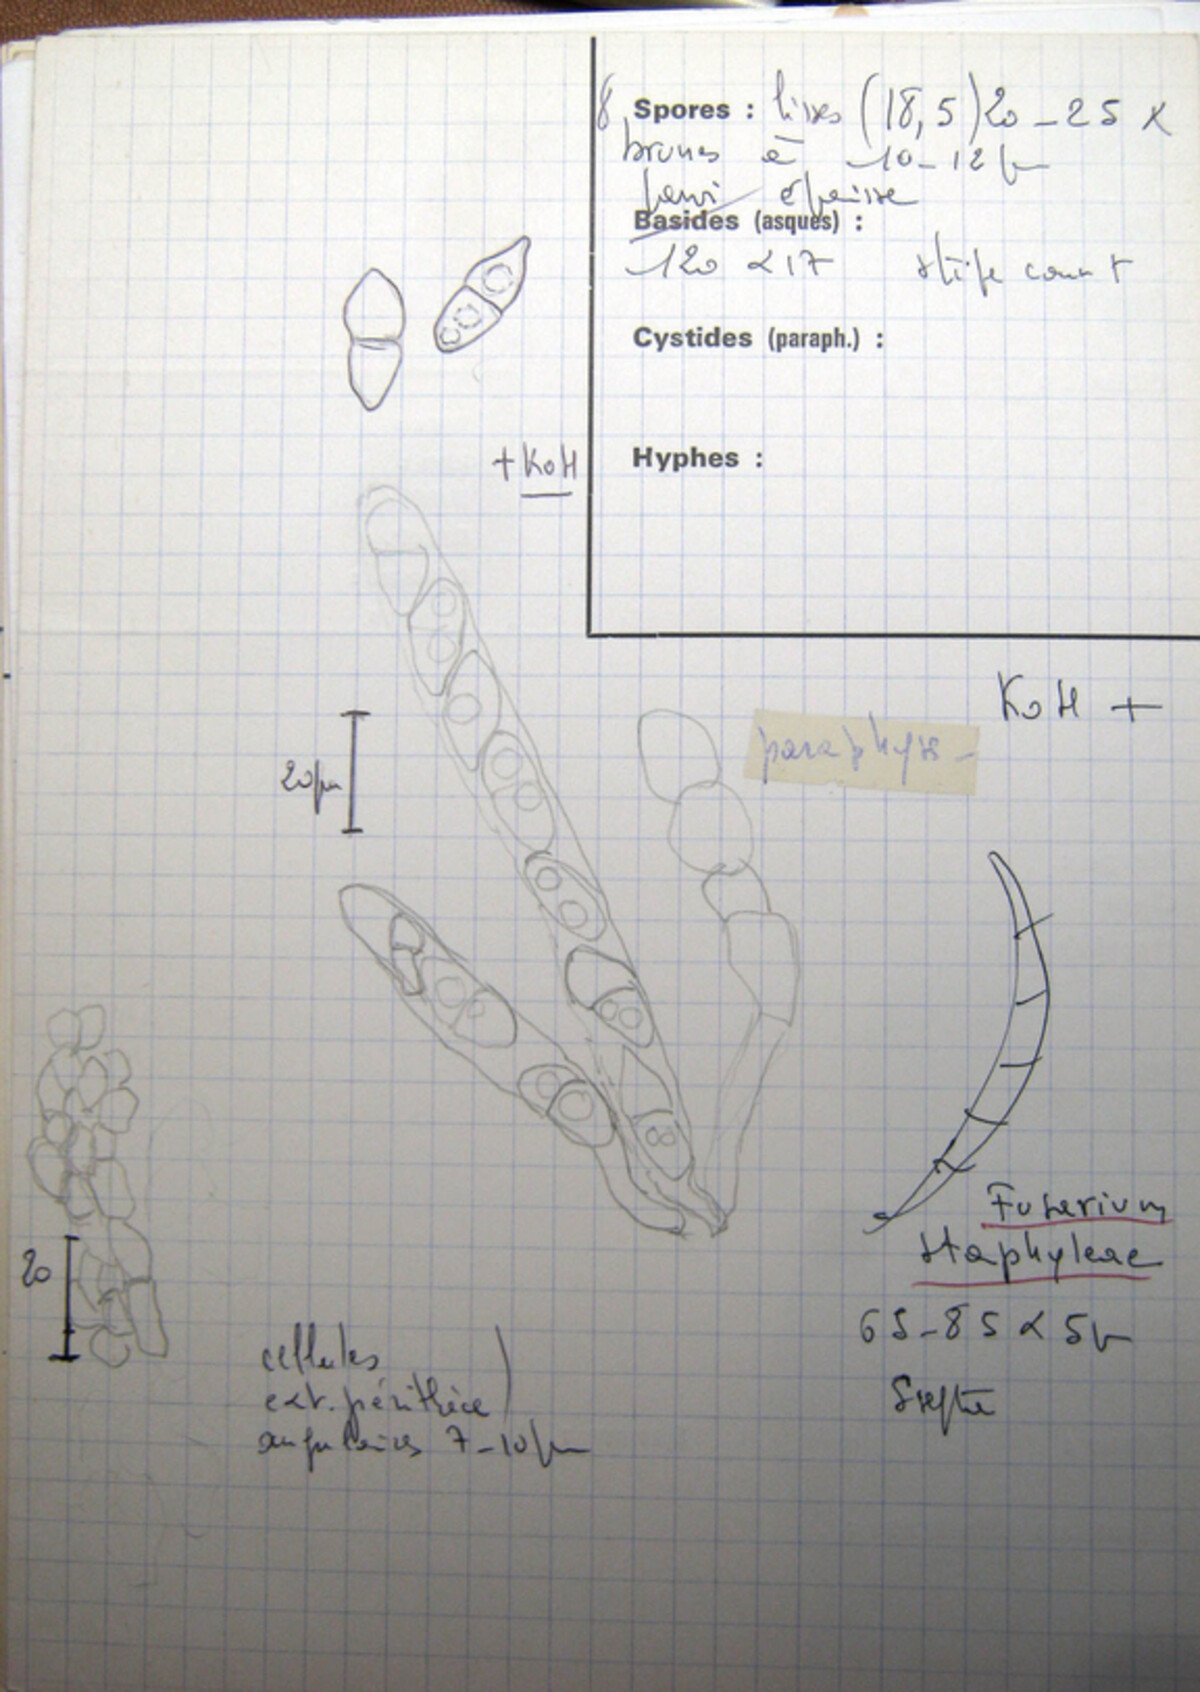 8 Spores : lisses (18,5)20-25 x
brunes à 10-12 µ
paroi épaisse
Basides (asques) :
120 x 17 stipe court
Cystides (paraph.) :
+ KOH
Hyphes :
KOH +
paraphyse
20 µm
Fusarium
staphyleae
20
65-85 x 5 µ
cellules
ext. périthèce
5 septé
angulaires 7-10 µm